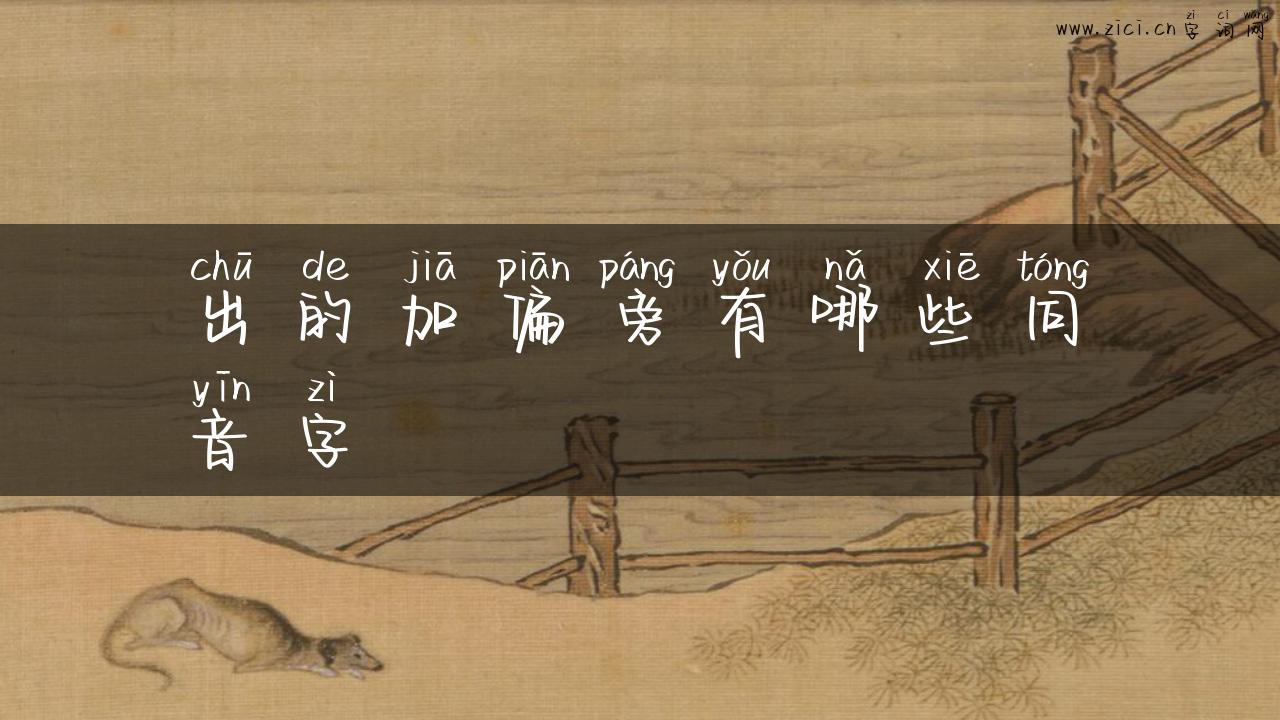 zì cí wǎng
www.zici.cn 字 词 网
chū de jiā piān páng yǒu nǎ xiē tóng
出 的 加 偏 旁 有 哪 些 同
yīn zì
音 字